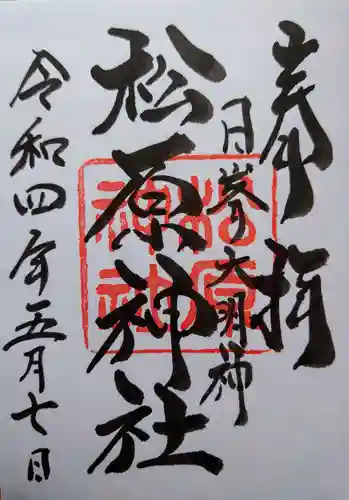 奉拝
日峯大明神
松原神社
松原
神社
令和四年五月七日